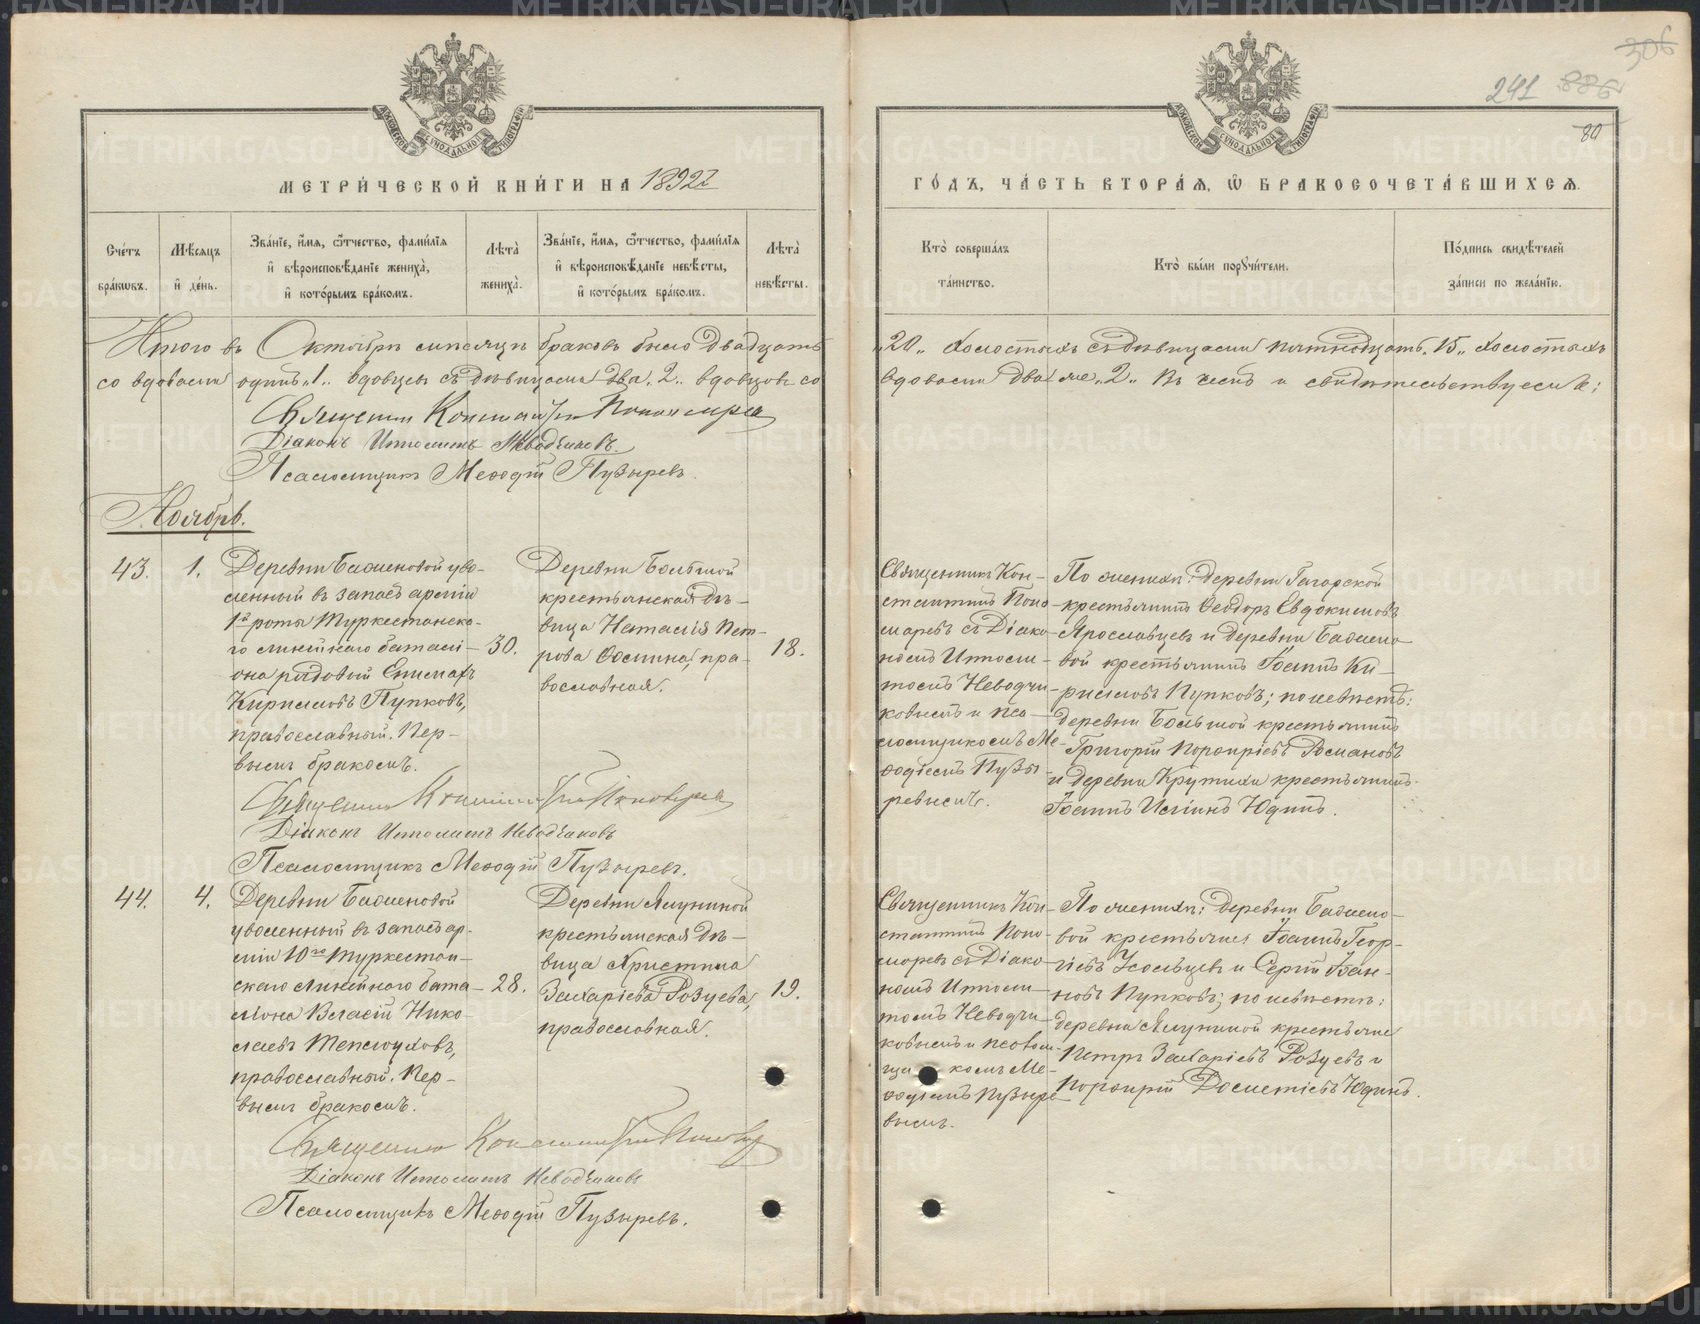 306
241 886
80
МОСКОВСКОЙ СѴНОДАЛЬНОЙ ТИПОГРАФІИ
МОСКОВСКОЙ СѴНОДАЛЬНОЙ ТИПОГРАФІИ
МЕТРИ́ЧЕСКОЙ КНИ́ГИ НА 1892й
ГО́ДЪ, ЧА́СТЬ ВТОРА́Я, Ѡ҆ БРАКОСОЧЕТА́ВШИХСЯ.
Сче́тъ бра́кѡвъ.
Мѣ́сяцъ и҆ де́нь.
Зва́нїе, и҆́мя, ѻ҆́тчество, фами́лїя и҆ вѣроисповѣ́данїе жениха̀, и҆ кото́рымъ бра́комъ.
Лѣта̀ жениха̀.
Зва́нїе, и҆́мя, ѻ҆́тчество, фами́лїя и҆ вѣроисповѣ́данїе невѣ́сты, и҆ кото́рымъ бра́комъ.
Лѣта̀ невѣ́сты.
Кто̀ соверша́лъ та́инство.
Кто̀ бы́ли порꙋчи́тели.
По́дпись свидѣ́телей за́писи по жела́нїю.
Итого въ Октябрѣ мѣсяцѣ браковъ было двадцать „20„ холостыхъ съ дѣвицами пятнадцать „15„ холостыхъ
со вдовами одинъ „1„ вдовцы съ дѣвицами два „2„ вдовцовъ со вдовами два же „2„ Въ чемъ и свидѣтельствуемъ:
Священникъ Константинъ Пономаревъ
Діаконъ Ипполитъ Неводчиковъ.
Псаломщикъ Меѳодій Пузыревъ.
Ноябрь.
43. 1.
Деревни Баженовой уво-
ленный въ запасъ арміи
1й роты Туркестанска-
го линейнаго баталі-
она рядовой Епимахъ
Кирилловъ Пупковъ,
православный. Пер-
вымъ бракомъ.
30.
Деревни Большой
крестьянская дѣ-
вица Наталія Пет-
рова Ѳомина, пра-
вославная.
18.
Священникъ Кон-
стантинъ Поно-
маревъ съ Діако-
номъ Иполи-
томъ Неводчи-
ковымъ и пса-
ломщикомъ Ме-
ѳодіемъ Пузы-
ревымъ.
По женихѣ: деревни Гагарской
крестьянинъ Ѳеодоръ Евдокимовъ
Ярославцевъ и деревни Бажено-
вой крестьянинъ Іоаннъ Ки-
рилловъ Пупковъ; по невѣстѣ:
деревни Большой крестьянинъ
Григорій Порфиріевъ Романовъ
и деревни Крутихи крестьянинъ
Іоаннъ Юдинъ.
Священникъ Константинъ Пономаревъ
Діаконъ Ипполитъ Неводчиковъ
Псаломщикъ Меѳодій Пузыревъ.
44. 4.
Деревни Баженовой
уволенный въ запасъ ар-
міи 10го Туркестан-
скаго линейнаго бата-
ліона Власій Нико-
лаевъ Теплоуховъ,
православный. Пер-
вымъ бракомъ.
28.
Деревни Ялуниной
крестьянская дѣ-
вица Христина
Захаріева Розуева,
православная.
19.
Священникъ Кон-
стантинъ Поно-
маревъ съ Діако-
номъ Иполи-
томъ Неводчи-
ковымъ и псалом-
щикомъ Ме-
ѳодіемъ Пузыре-
вымъ.
По женихѣ: деревни Бажено-
вой крестьяне Іоаннъ Геор-
гіевъ Усольцевъ и Сергій Іоан-
новъ Пупковъ; по невѣстѣ:
деревни Ялуниной крестьяне
Петръ Захаріевъ Розуевъ и
Порфирій Дометіевъ Юдинъ.
Священникъ Константинъ Пономаревъ
Діаконъ Ипполитъ Неводчиковъ
Псаломщикъ Меѳодій Пузыревъ.
METRIKI.GASO-URAL.RU